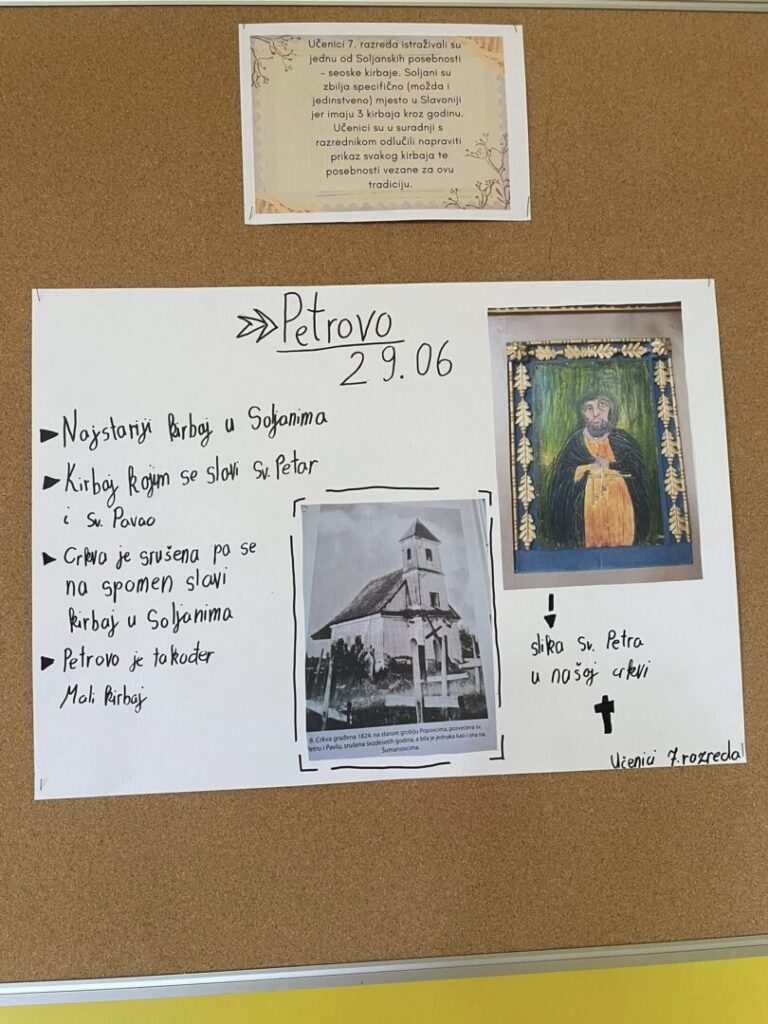 Učenici 7. razreda istraživali su
jednu od Soljanskih posebnosti
- seoske kirbaje. Soljani su
zbilja specifično (možda i
jedinstveno) mjesto u Slavoniji
jer imaju 3 kirbaja kroz godinu.
Učenici su u suradnji s
razrednikom odlučili napraviti
prikaz svakog kirbaja te
posebnosti vezane za ovu
tradiciju.
Petrovo
29.06
Najstariji kirbaj u Soljanima
Kirbaj kojim se slavi sv. Petar
i sv. Pavao
Crkva je srušena pa se
na spomen slavi
kirbaj u Soljanima
Petrovo je također
Mali kirbaj
8. Crkva građena 1824. na starom groblju Popovcima, posvećena sv.
Petru i Pavlu, srušena šezdesetih godina, a bila je jednaka kao i ona na
Šumanovcima.
slika sv. Petra
u našoj crkvi
Učenici 7.razreda